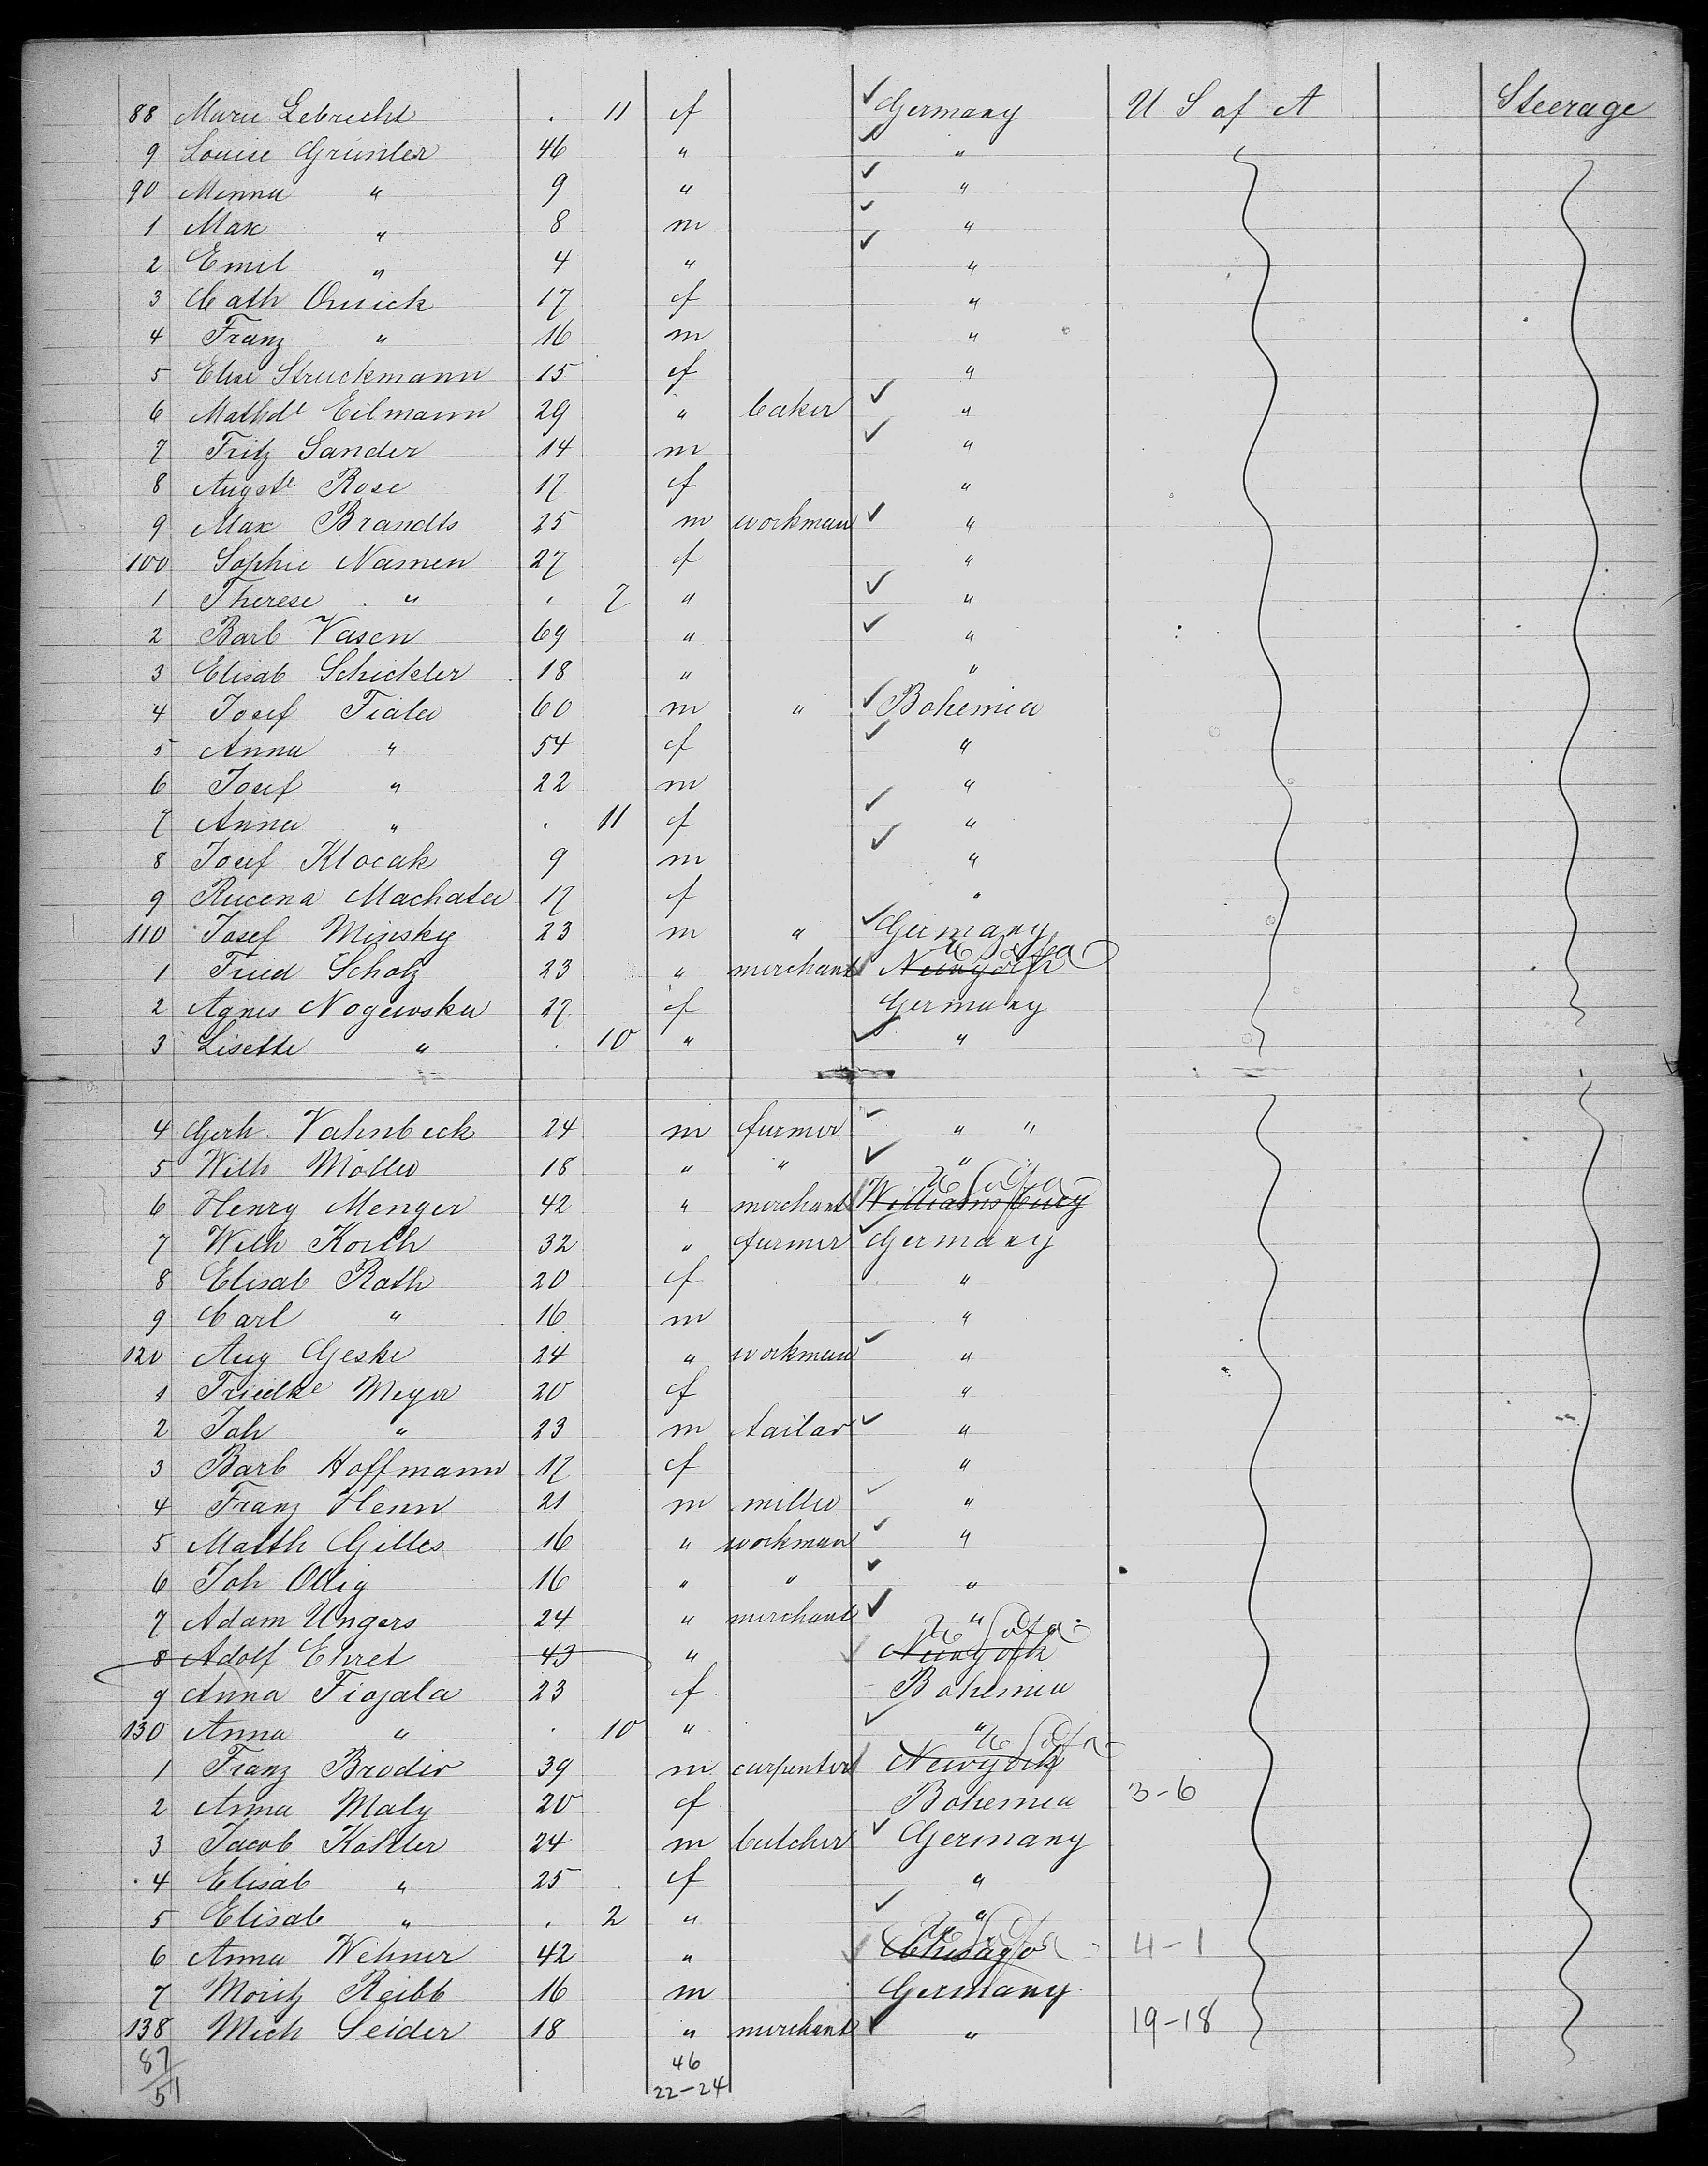 88 Marie Lebrecht . 11 f Germany U S of A Steerage
9 Louise Grünler 46 " "
90 Minna " 9 " "
1 Max " 8 m "
2 Emil " 4 " "
3 Cath Quick 17 f "
4 Franz " 16 m "
5 Elise Struckmann 15 f "
6 Mathde Eilmann 29 " baker "
7 Fritz Sander 14 m "
8 Augste Rose 17 f "
9 Max Brandts 25 m workman "
100 Sophie Namen 27 f "
1 Therese " . 7 " "
2 Barb Vasen 69 " "
3 Elisab Schickler 18 " "
4 Josef Fiala 60 m " Bohemia
5 Anna " 54 f "
6 Josef " 22 m "
7 Anna " . 11 f "
8 Josef Klocak 9 m "
9 Rucena Machata 17 f "
110 Josef Minsky 23 m " Germany
1 Fried Scholz 23 " merchant Newyork U S of A
2 Agnes Nogewska 27 f Germany
3 Lisette " . 10 " "
4 Gerh. Vahnbeck 24 m farmer " "
5 Wilh Möller 18 " " "
6 Henry Menger 42 " merchant Williamsburg U S of A
7 Wilh Korth 32 " farmer Germany
8 Elisab Rath 20 f "
9 Carl " 16 m "
120 Aug Geske 24 " workman "
1 Friedke Meyer 20 f "
2 Joh " 23 m tailor "
3 Barb Hoffmann 17 f "
4 Franz Henn 21 m miller "
5 Matth Gilles 16 " workman "
6 Joh Ollig 16 " " "
7 Adam Ungers 24 " merchant "
8 Adolf Ehret 43 " Newyork U S of A
9 Anna Fiogala 23 f Bohemia
130 Anna " . 10 " "
1 Franz Brodir 39 m carpenter Newyork U S of A
2 Anna Maly 20 f Bohemia 3-6
3 Jacob Kohler 24 m butcher Germany
4 Elisab " 25 f "
5 Elisab " . 2 " "
6 Anna Wehner 42 " Chicago U S of A 4-1
7 Moritz Reibb 16 m Germany
138 Mich Seider 18 " merchant " 19-18
87 46
51 22-24